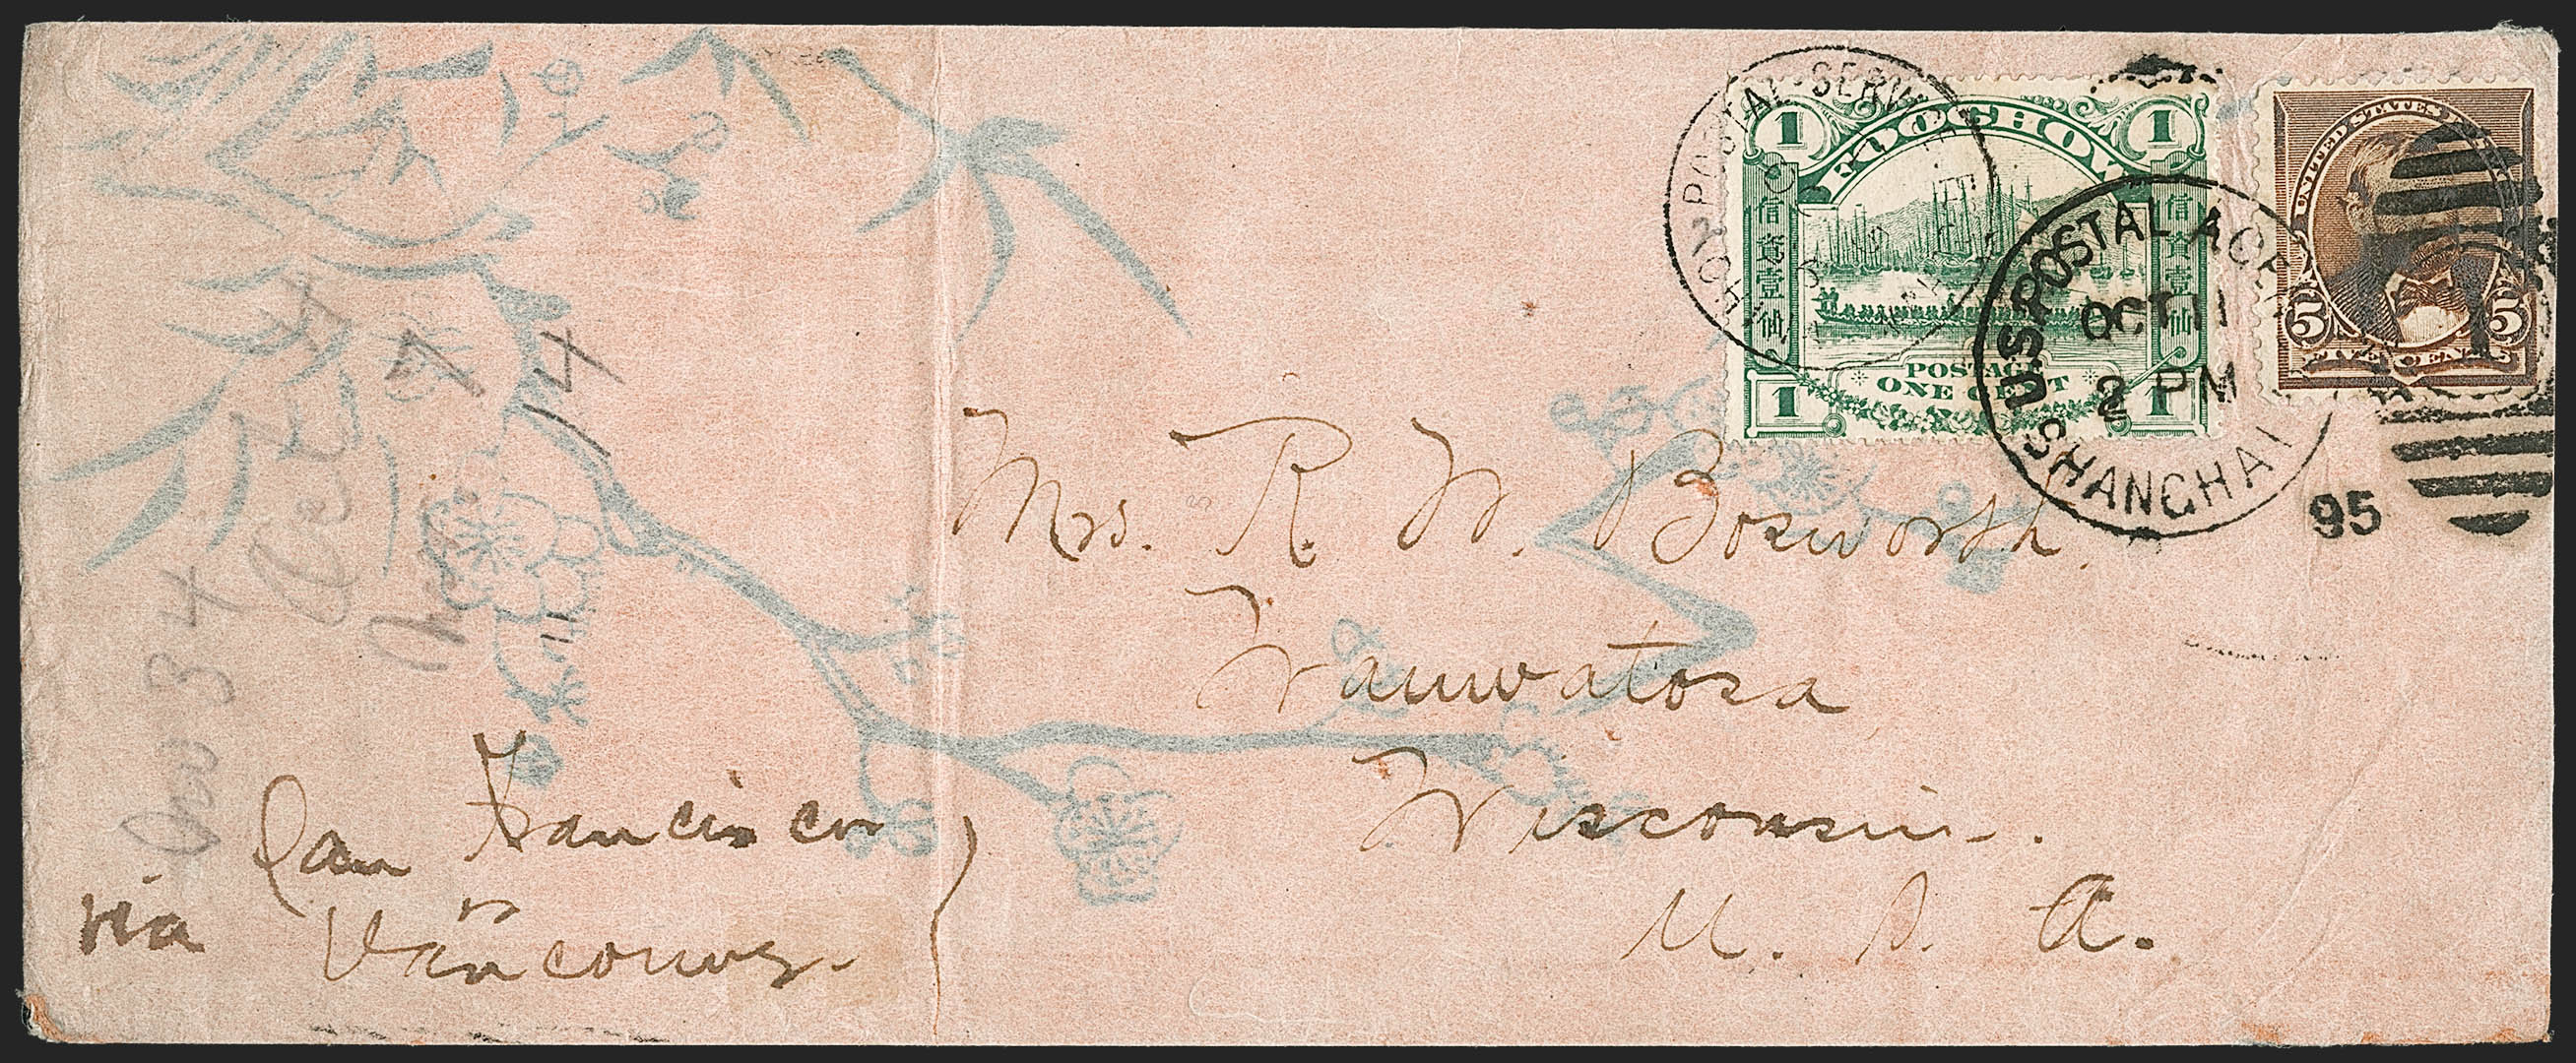 POSTAL SERVICE
1 FOOCHOW 1
信 壹 仙
信 資 壹 仙
POSTAGE
ONE CENT
1 1
UNITED STATES
5 5
FIVE CENTS
U.S. POSTAL AGCY
OCT 11
2 PM
95
SHANGHAI
14
Mrs. R. W. Bosworth.
Wauwatosa
Wisconsin.
U. S. A.
San Francisco
via or
Vancouver.